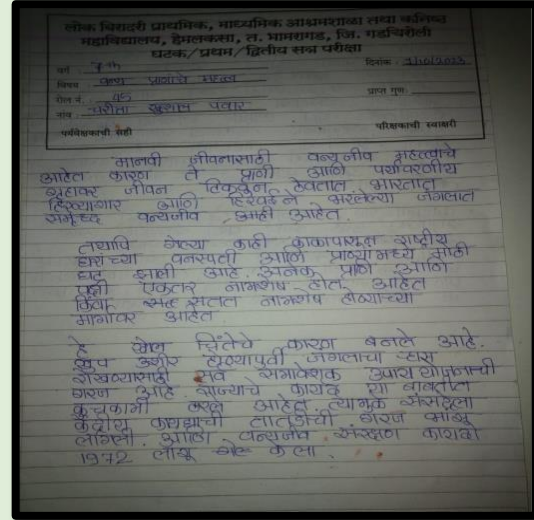 लोक बिरादरी प्राथमिक, माध्यमिक आश्रमशाळा तथा कनिष्ठ
महाविद्यालय, हेमलकसा, त. भामरागड, जि. गडचिरोली
घटक/प्रथम/द्वितीय सत्र परीक्षा
वर्ग 7th दिनांक 1/10/2023
विषय वन्य प्राणांचे महत्व
रोल नं. 45 प्राप्त गुण
नाव पवार
पर्यवेक्षकाची सही परिक्षकाची स्वाक्षरी
मानवी जीवनासाठी वन्यजीव महत्त्वाचे
आहेत कारण ते प्राणी आणि पर्यावरणीय
जीवन टिकवून ठेवतात भारतात
आणि भरलेल्या जंगलात
समृध्द वन्यजीव आहेत.
तथापि गेल्या काही काळापासून राष्ट्रीय
च्या वनस्पती आणि मध्ये मोठी
घट झाली आहे. अनेक प्राणी आणि
पक्षी एकतर नामशेष होत आहेत
किंवा नामशेष होण्याच्या
मार्गावर आहेत
हे चिंतेचे कारण बनले आहे.
खुप उशीर होण्यापूर्वी जंगलाचा ऱ्हास
रोखण्यासाठी सर्व समावेशक उपाय योजनाची
गरज आहे. राज्याचे कायदे या बाबतीत
कुचकामी ठरले आहेत. त्यामुळे संसदेला
केंद्रीय कायद्याची गरज भासू
लागली. आणि वन्यजीव संरक्षण कायदा
1972 लागू केला.